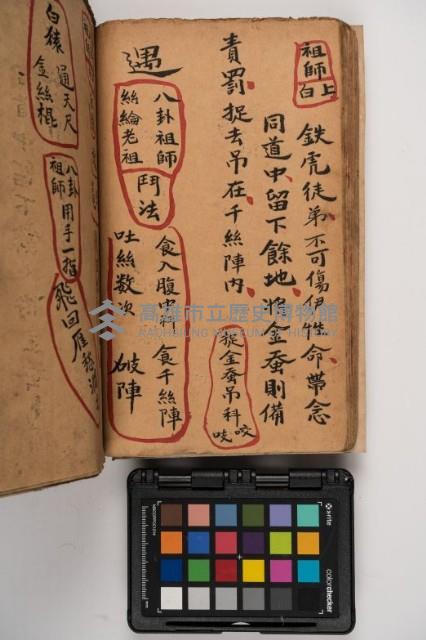 祖師上白
鉄虎徒弟不可傷伊性命帶念
同道中留下餘地將金蚕則備
責罰捉去吊在千絲陣內
捉金蚕吊科
咬咬
遇
八卦祖師
絲綸老祖
鬥法
食入腹中科 食千絲陣
吐絲数次 破陣
白猿 通天尺
金絲棍
八卦祖師 用手一指
飛回
高雄市立歷史博物館
KAOHSIUNG MUSEUM OF HISTORY
x-rite
colorchecker